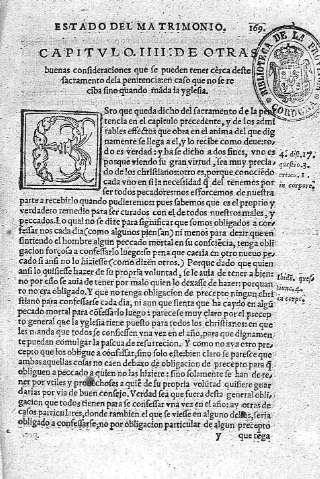 ESTADO DEL MATRIMONIO. 169.
CAPITVLO.IIII: DE OTRAS
buenas consideraciones que se pueden tener cerca deste
sacramento dela penitencia: en caso que no se re
ciba sino quando māda la yglesia.
Sto que queda dicho del sacramento de la peni
tencia en el capitulo precedente, y de los admi
rables effectos que obra en el anima del que digna
mente se llega a el, y lo recibe como deue:to
do es verdad y ha se dicho a dos fines, vno es
porque viendo su gran virtud, sea muy precia
do de los christianos: otro es, porque conociēdo
cada vno en si la necessidad q̄ del tenemos por
ser todos pecadores nos esforcemos de nuestra
parte a recibirlo quando pudieremos: pues sabemos que es el proprio y
verdadero remedio para ser curados con el, de todos nuestros males, y
peccados. Lo qual no se dize para significar que somos obligados a con
fessar nos cada dia (como algunos piensan) ni menos para dezir que en
sintiendo el hombre algun peccado mortal en su consciēcia, tenga obli
gacion forçosa a confessarlo luego so pena que caeria en otro nueuo pec
cado si ansi no lo hiziesse (como dizen otros.) Porque dado que quien
ansi lo quisiesse hazer de su propria voluntad, se le auia de tener a bien:
no por esso se auia de tener por malo quien lo dexasse de hazer: porque
no era obligado. Y que no tenga obligacion de precepto ningun chri
stiano para confessarse cada dia, ni aun que sienta que ha caydo en algun
pecado mortal para cōfessarlo luego: parece se muy claro por el precep
to general que la yglesia tiene puesto para todos los christianos: en que
les manda que todos se confiessen vna vez en el año, para que dignamen
te puedan comulgar la pascua de resurrecion. Y como no aya otro pre
cepto que los obligue a cōfessar, sino solo este: bien claro se parece que
ambas aquellas cosas no caen debaxo de obligacion de precepto para q̄
obliguen a peccado a quien no las hiziere: sino solamente se han de te
ner por vtiles y prouechosas a quiē de su propria volūtad quisiere guar
darlas por via de buen consejo. Verdad sea que fuera desta general obli
gacion que todos tienen para se confessar vna vez en el año: ay otras de
casos particulares, donde tambien el que se viesse en alguno dellos, seria
obligado a confessarse, no por obligacion particular de algun precepto
Y que tēga
4. dist. 17.